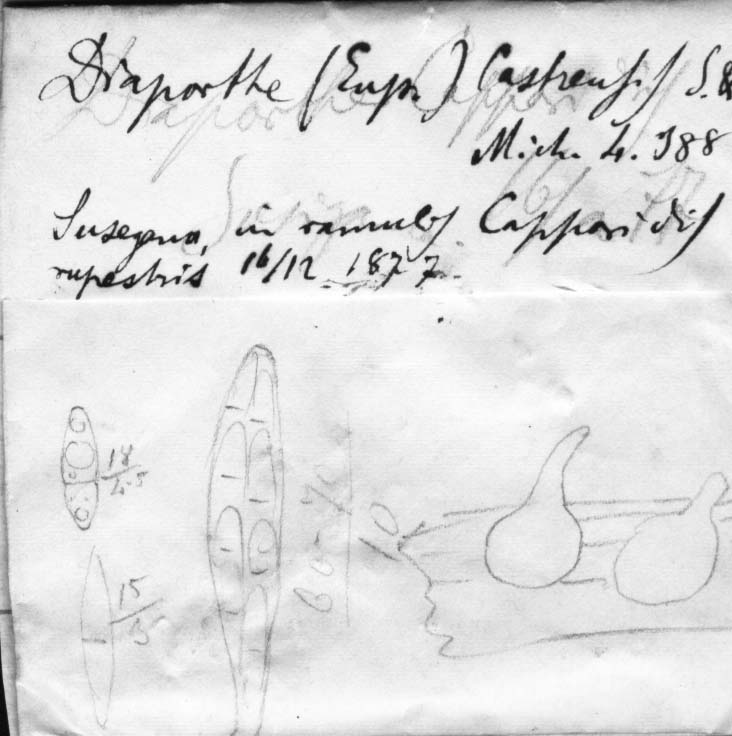 Diaporthe (Eupr.) Castrensis S. &
Mich. 4. 388
Susegana, in ramulis Capparidis
rupestris 16/12 1877.
18
4-5
15
3
60-70
10